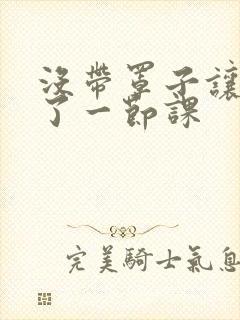 沒帶罩子讓
了一節課
完美騎士氣息